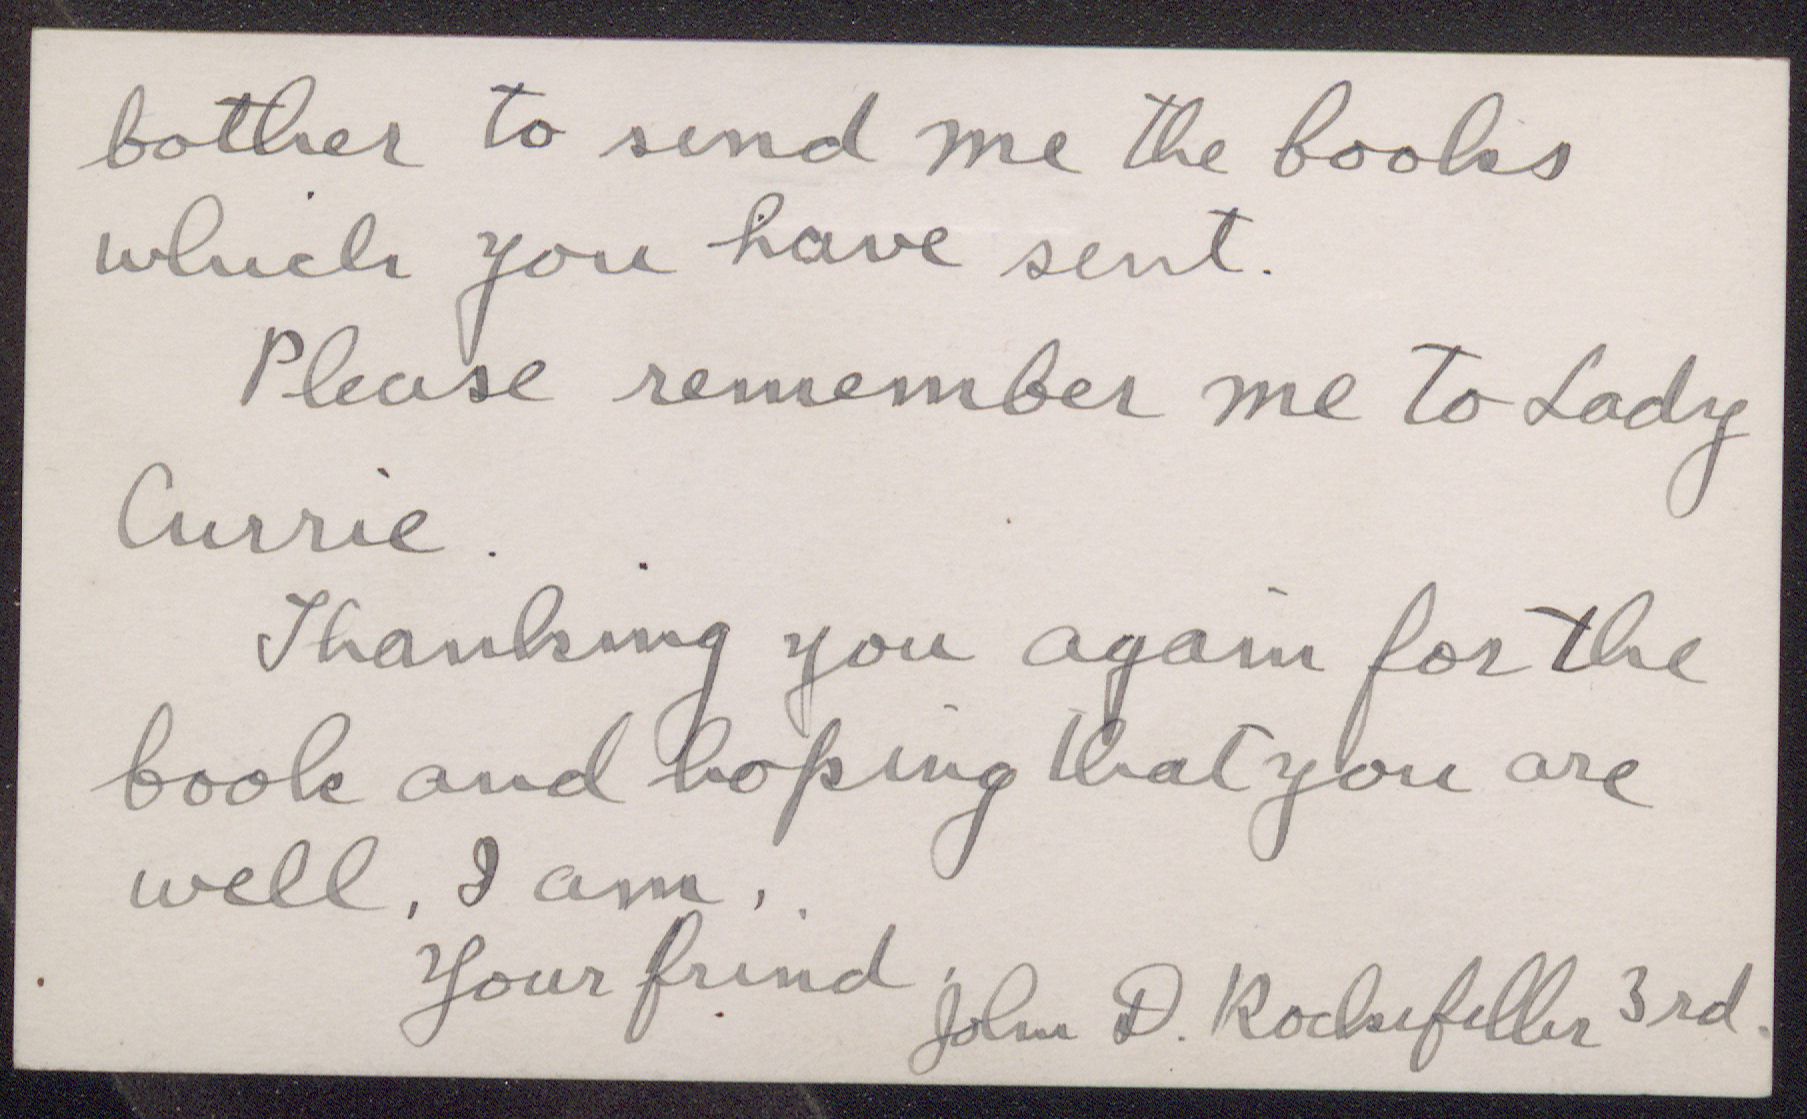 bother to send me the books
which you have sent.
Please remember me to Lady
Currie.
Thanking you again for the
book and hoping that you are
well, I am,
Your frind,
John D. Rockefeller 3rd.